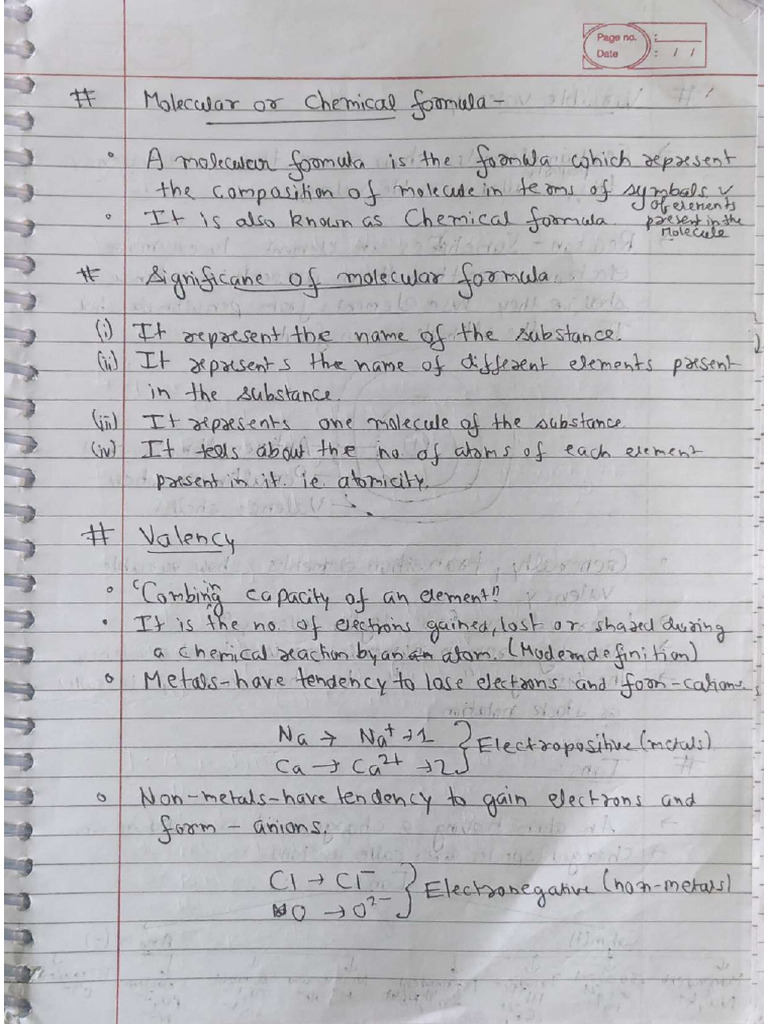 Page no. :
Date : / /
# Molecular or Chemical formula -
• A molecular formula is the formula which represent
the composition of molecule in terms of symbols
of elements
present in the
Molecule
• It is also known as Chemical formula.
# Significane of molecular formula
(i) It represent the name of the substance.
(ii) It represents the name of different elements present
in the substance.
(iii) It represents one molecule of the substance.
(iv) It tells about the no of atoms of each element
present in it. ie. atomicity.
# Valency
• "Combining capacity of an element"
• It is the no. of electrons gained, lost or shared during
a chemical reaction by an atom. (Modern definition)
• Metals-have tendency to lose electrons and form-cations
Na → Na⁺ → 1 } Electropositive (metals)
Ca → Ca²⁺ → 2
• Non-metals-have tendency to gain electrons and
form - anions.
Cl → Cl⁻ } Electronegative (non-metals)
O → O²⁻